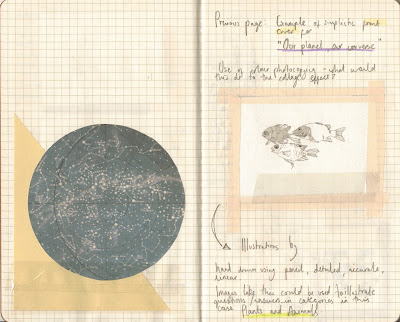 Previous page - Example of simplistic front
cover for
"Our planet, our universe"
Use of colour photocopying - what would
this do to the collage effect?
Illustrations by
Hand drawn using pencil, detailed, accurate,
linear.
Images like this could be used to illustrate
questions/answers in categories in this
case Plants and Animals